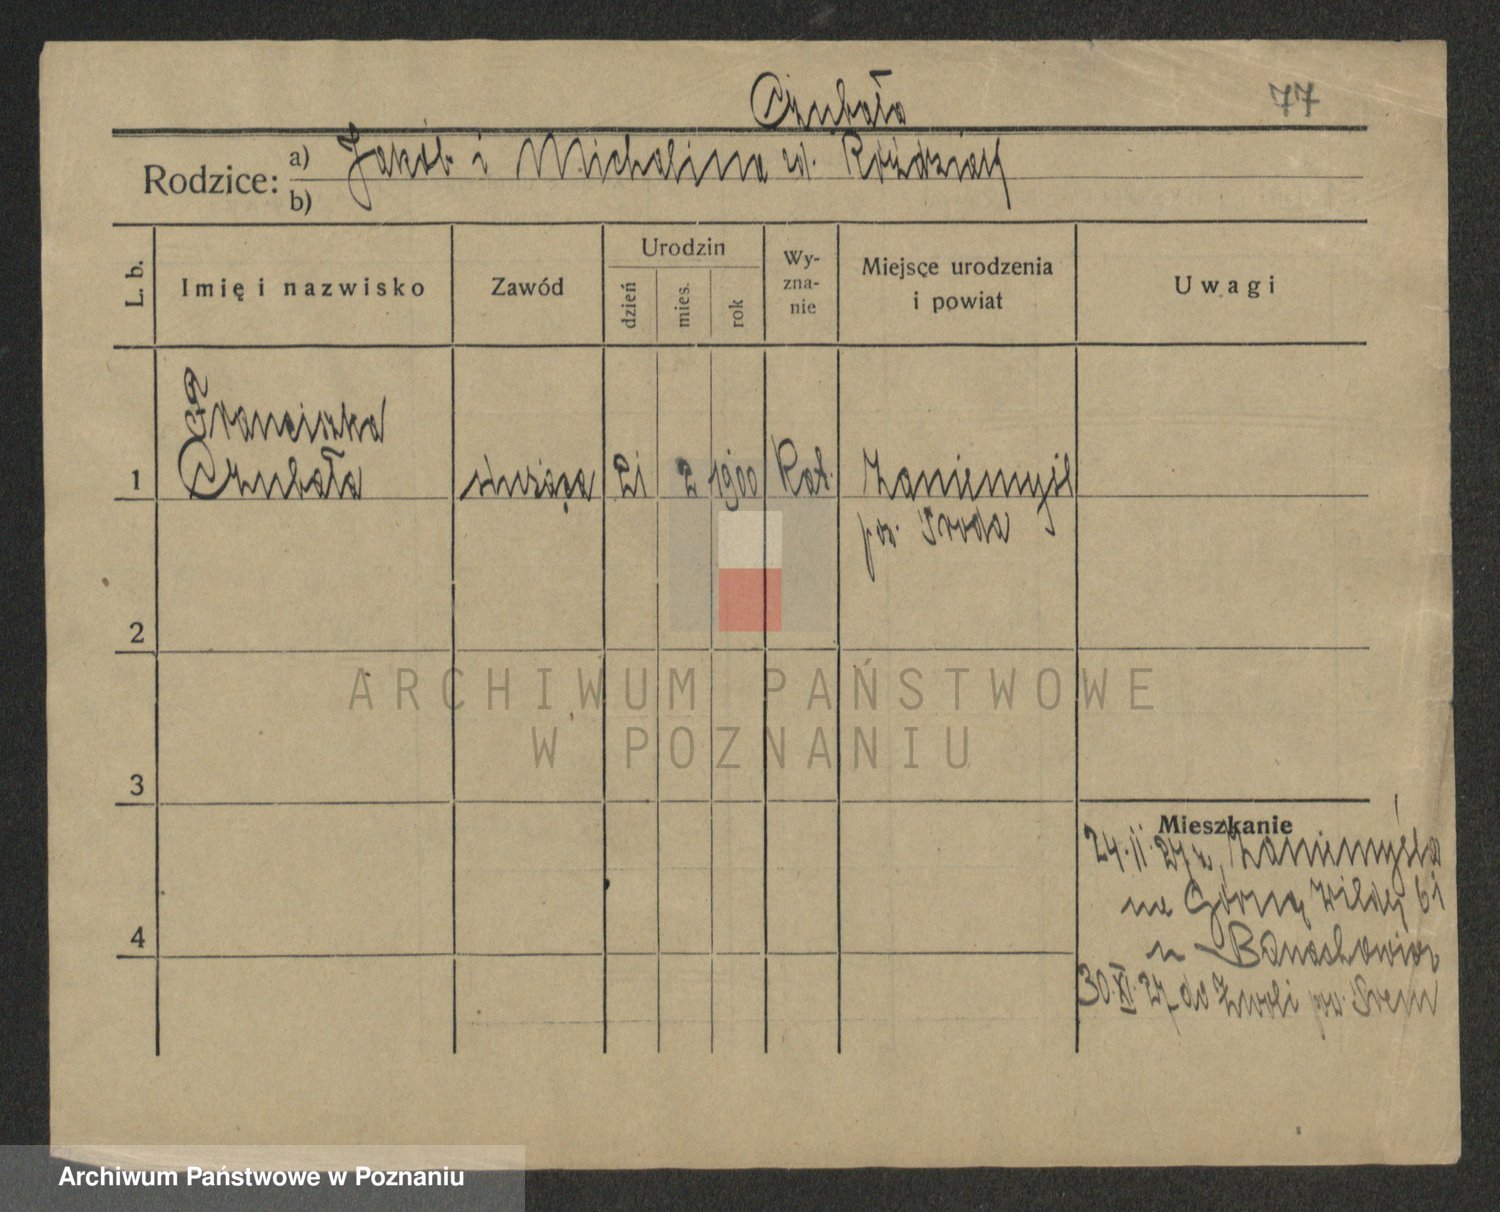 Czubała
77
Rodzice:
a) Jakób i Michalina zd.
b)
L. b.
Imię i nazwisko
Zawód
Urodzin
dzień
mies.
rok
Wy-
zna-
nie
Miejsce urodzenia
i powiat
Uwagi
Franciszka
1 Czubała służąca 21 2 1900 Kat. Zaniemyśl
pow. Środa
2
3
4
Mieszkanie
24.II.27 z Zaniemyśla
na Górną Wildę 61
u
30.XI.27 do Zwoli pow. Śrem
ARCHIWUM PAŃSTWOWE
W POZNANIU
Archiwum Państwowe w Poznaniu